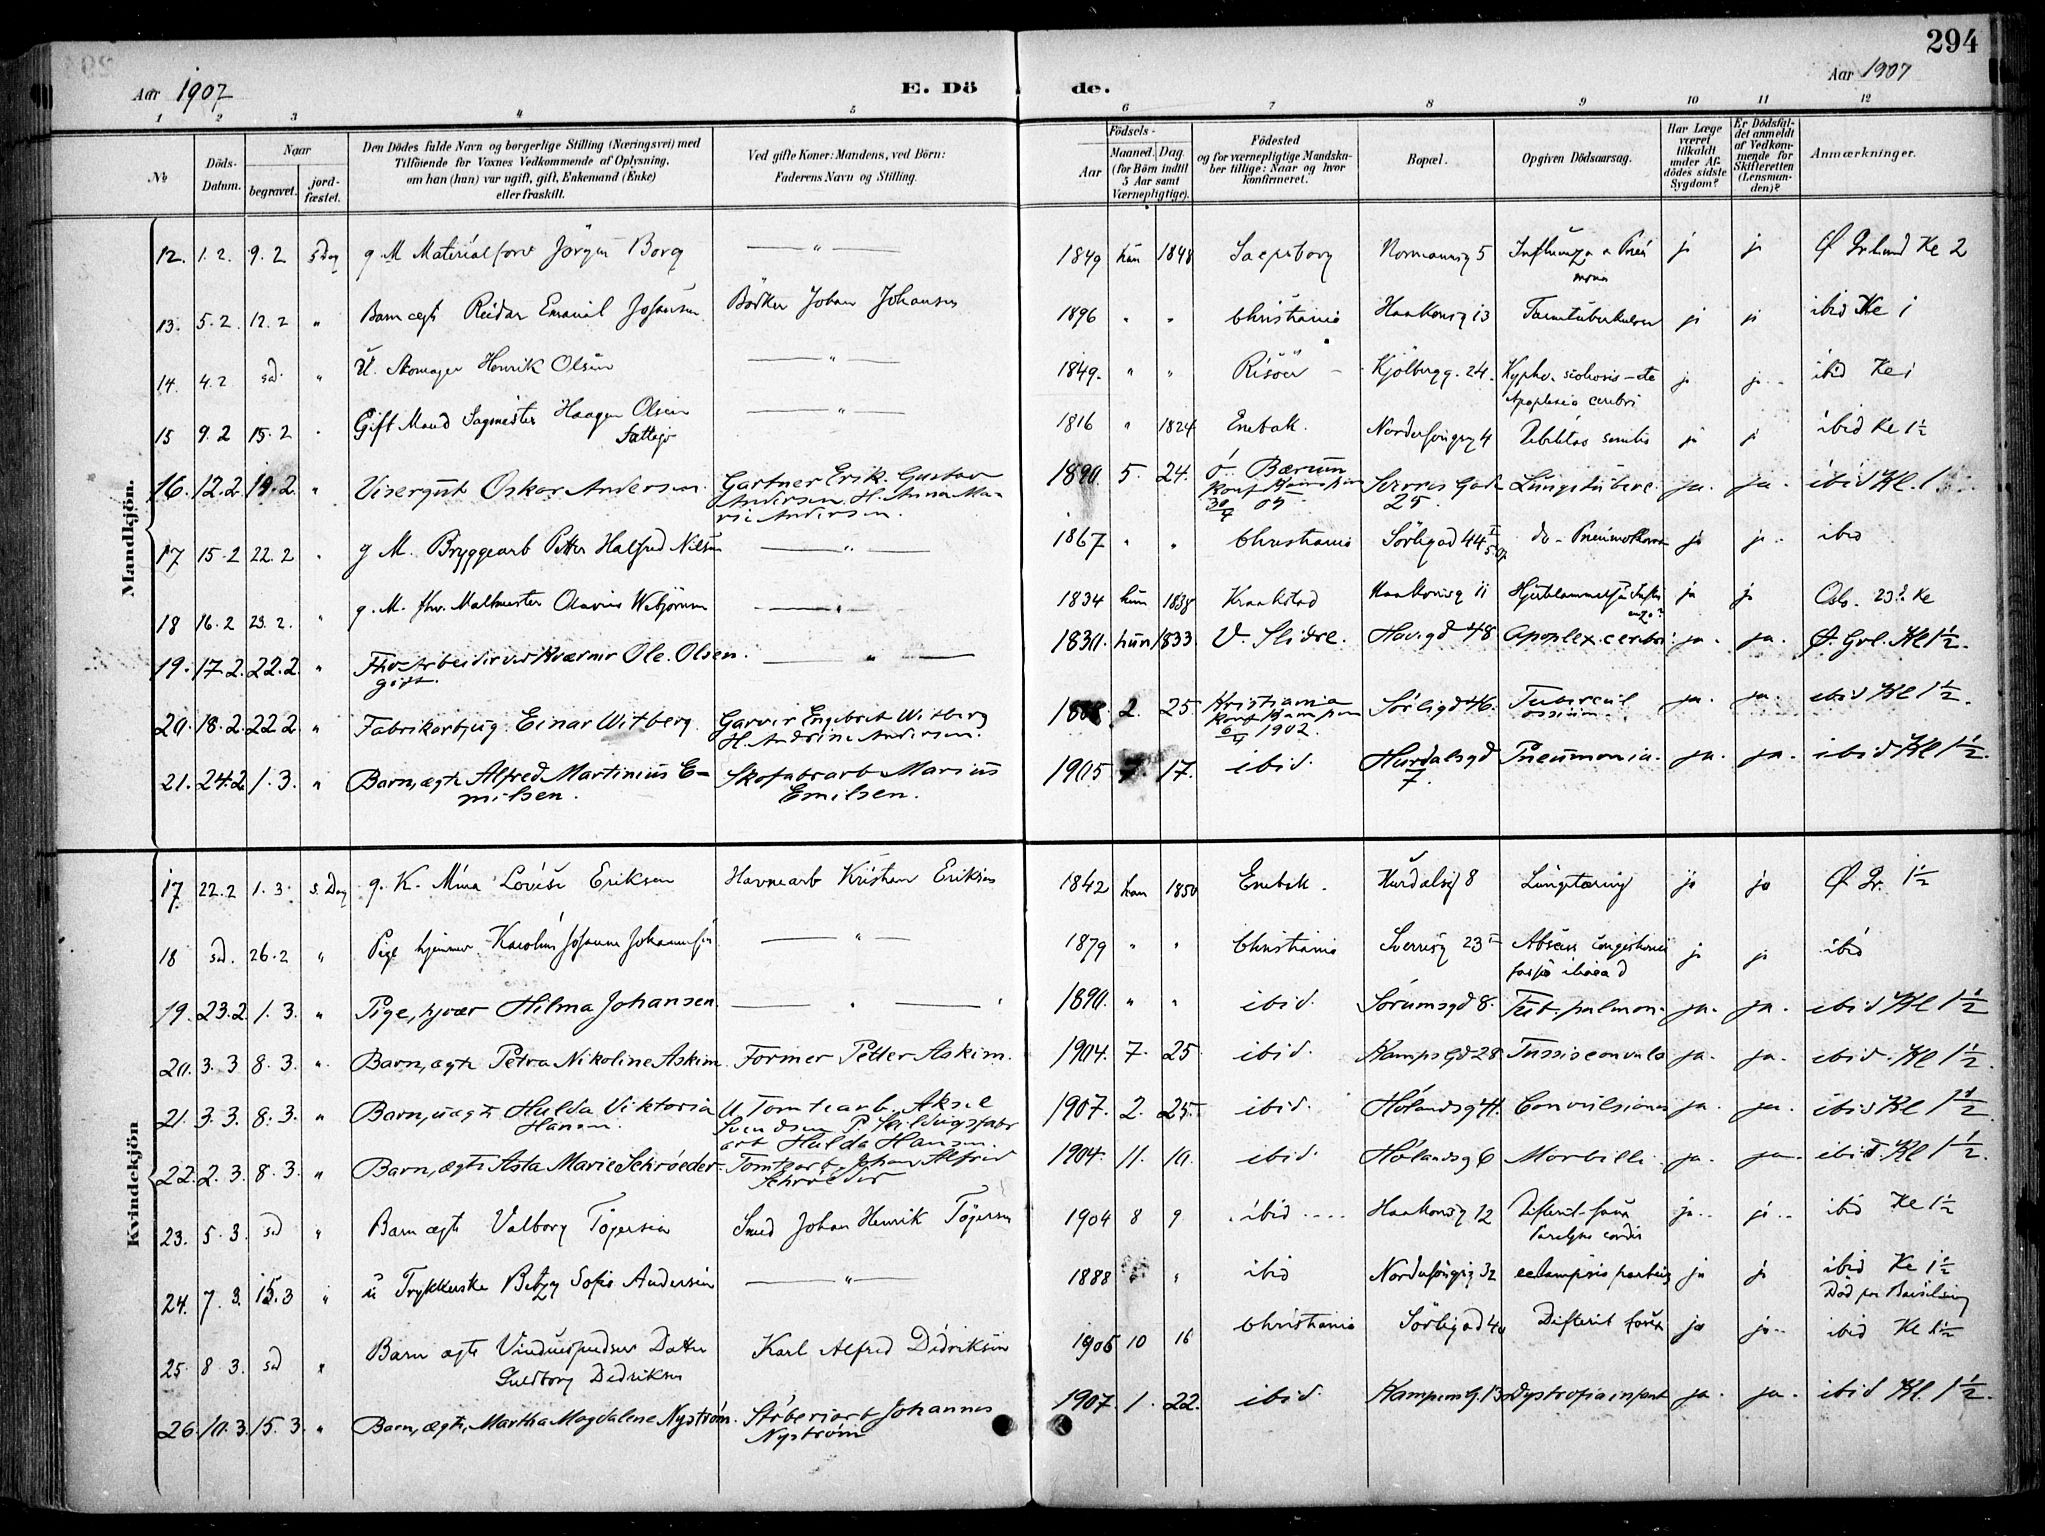 294
Aar 1907
E. Dö
de.
Aar 1907
1 2 3 4 5 6 7 8 9 10 11 12
№
Döds-Datum.
Naar
begravet.
jordfæstet.
Den Dödes fulde Navn og borgerlige Stilling (Næringsvei) med
Tilföiende for Voxnes Vedkommende af Oplysning,
om han (hun) var ugift, gift, Enkemand (Enke)
eller fraskilt.
Ved gifte Koner: Mandens, ved Börn:
Faderens Navn og Stilling.
Födsels-
Aar
Maaned. Dag.
(for Börn indtil
5 Aar samt
Værnepligtige).
Födested
og for værnepligtige Mandska-
ber tillige: Naar og hvor
konfirmeret.
Bopæl.
Opgiven Dödsaarsag.
Har Læge
været
tilkaldt
under Af-
dödes sidste
Sygdom?
Er Dödsfal-
det anmeldt
af Vedkom-
mende for
Skifteretten
(Lensman-
den)?
Anmærkninger.
Mandkjön.
12. 1. 2. 9. 2 s Dag g. M Materialforv Jörgen Borg 1849 hun 1848 Sarpsborg Normannsg 5 Influenza Pneu ja ja Ø Grlund Kl 2
mona
13. 5. 2 12. 2 " Barn ægte Reidar Emanuel Johansen Bödker Johan Johansen 1896 " " Christiania Haakonsg 13 Tarmtuberkulose ja ja ibid Kl 1
14. 4. 2 sd " U. Skomager Henrik Olsen 1849. " " Risöer Kjölbergg. 24. Kypho-scoliosis ja ja ibid Kl 1
Apoplexia cerebri
15 9. 2 15. 2 Gift Mand Sagmester Haagen Olsen 1816 " 1824 Enebak. Nordenföngeg 4 Debilitas senilis ja ja ibid Kl 1½
16. 12. 2. 19. 2. " Visergut Oskar Andersen. Gartner Erik Gustav 1890 5. 24. Ö. Bærum Sverres Gad Lungetuberc. ja. ja. ibid Kl. 1
Andersen. H. Anna Ma- Konf Kampen 25.
rie Andersen. 30/4 05
17 15. 2 22. 2 g M. Bryggearb Petter Halfred Nilsen 1867 " " Christiania Sörligad 44 do Pneumothorax ja ja ibid
18 16. 2 23. 2. " g. M. fhv. Maltmester Olavius Webjörnsen 1834 hun 1838 Kraakstad Haakonsg 11 ja ja Oslo. 23/2 Kl
19. 17. 2. 22. 2. " Fhv. Arbeider ved Kværner Ole Olsen. 1830. hun 1833. V. Slidre. Havgd 48 Apoplex. cerebri ja. ja. Ø. Gvl. Kl 1½.
gift.
20. 18. 2. 22. 2 " Fabrikarb, ug. Einar Witberg. Garver Engebret Witberg 2. 25 Kristiania Sørligd 46. Tubercul ja. ja. ibid Kl 1½.
H. Andrine Andersen. Konf Kampen ossium.
6/4 1902.
21. 24. 2. 1. 3. " Barn, ægte Alfred Martinius E- Skofabrarb Marius 1905 7 17. ibid. Hurdalsgd Pneumonia. ja. ja. ibid Kl 1½.
milsen. Emilsen. 7.
Kvindekjön
17 22. 2 1. 3. s. Dag g. K. Mina Lovise Eriksen Havnearb Kristian Eriksen 1842 han 1850 Enebak. Hurdalsg 8 Lungetæring ja ja Ø Gr. 1½
18 sd. 26. 2 " Pige hjemmev Karoline Johanne Johannesen 1879 " " Christiania Sverresg 23 ja ja ibid
19. 23. 2. 1. 3. " Pige, hjvær Hilma Johansen. 1890. " " ibid. Sørumsgd 8. Tub. pulmon. ja. ja. ibid Kl 1½
20. 3. 3 8. 3. " Barn, ægte Petra Nikoline Askim Former Petter Askim. 1904. 7. 25. ibid. Kamps Gd 28 Tussis convuls ja. ja. ibid. Kl 1½.
21. 3. 3. 8. 3. " Barn, uægte Hulda Viktoria U Tomtearb. Aksel 1907. 2. 25. ibid. Hölandsg 4. Convulsiones ja. ja. ibid Kl 1½.
Hansen. Svendsen P. Skilingsfabr
arb Hulda Hansen.
22. 2. 3. 8. 3. " Barn, ægte Asta Marie Schrøeder. Tomtearb. Johan Alfred 1904. 11. 10. ibid. Hölandsg 6 Morbilli. ja. ja. ibid. Kl 1½.
Schrøeder
23. 5. 3. sd " Barn ægte Valborg Tögersen Smed Johan Henrik Tögersen 1904 8 9 ibid Haakonsg 12 ja ja ibid Kl 1½
Paralysis cordis
24. 7. 3. 15. 3 " u Trykkerske Betzy Sofie Andersen 1888 " " ibid Nordenföngeg 32 eclampsia ja ja ibid Kl 1½
Död paa Barselseng
25 8 3. sd " Barn ægte Vinduespudsers Datter Karl Alfred Didriksen 1906 10 16 Christiania Sörligad 40 Difterit ja ja ibid Kl 1½
Guldborg Didriksen
26. 10. 3. 15. 3. " Barn, ægte, Martha Magdalene Nystrøm. Støberiarb Johannes 1907. 1. 22. ibid. Kampens G. 13 Dystrofia infant ja. ja. ibid Kl. 1½.
Nystrøm